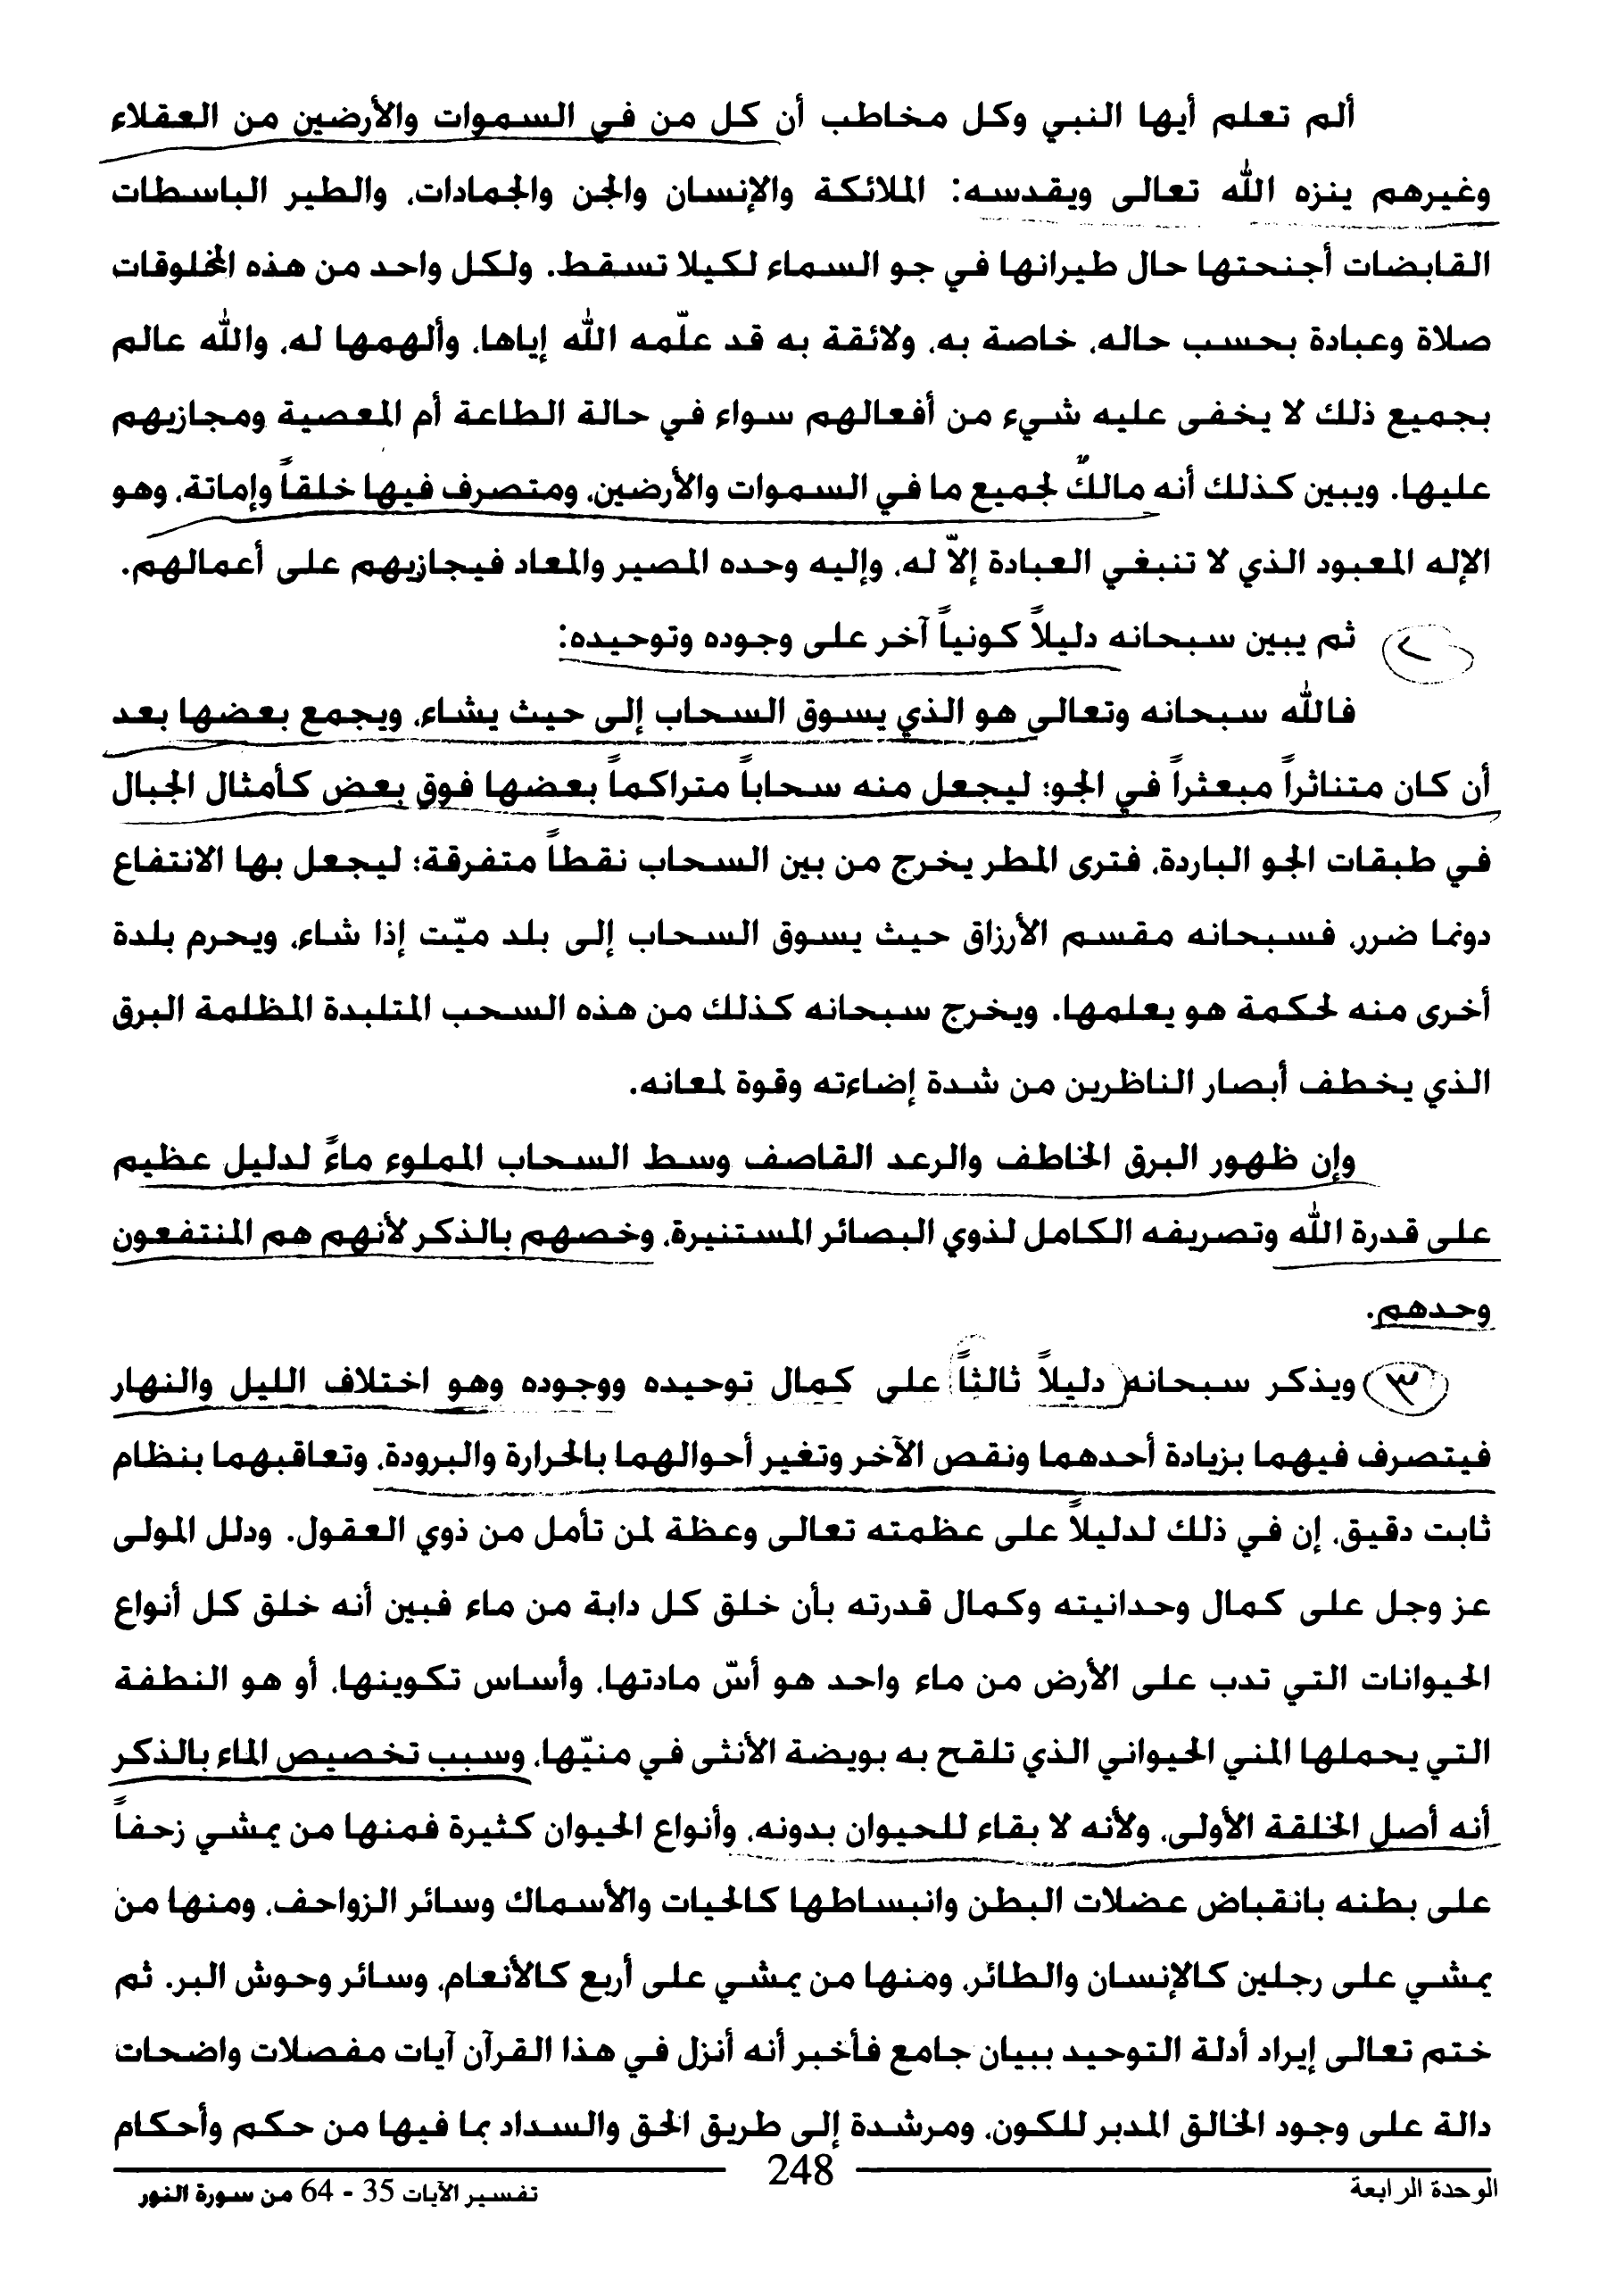 ألم تعلم أيها النبي وكل مخاطب أن كل من في السموات والأرضين من العقلاء
وغيرهم ينزه الله تعالى ويقدسه: الملائكة والإنسان والجن والجمادات، والطير الباسطات
القابضات أجنحتها حال طيرانها في جو السماء لكيلا تسقط. ولكل واحد من هذه المخلوقات
صلاة وعبادة بحسب حاله، خاصة به، ولائقة به قد علّمه الله إياها، وألهمها له، والله عالم
بجميع ذلك لا يخفى عليه شيء من أفعالهم سواء في حالة الطاعة أم المعصية ومجازيهم
عليها. ويبين كذلك أنه مالكٌ لجميع ما في السموات والأرضين، ومتصرف فيها خلقاً وإماتة، وهو
الإله المعبود الذي لا تنبغي العبادة إلاّ له، وإليه وحده المصير والمعاد فيجازيهم على أعمالهم.
٢ ثم يبين سبحانه دليلاً كونياً آخر على وجوده وتوحيده:
فالله سبحانه وتعالى هو الذي يسوق السحاب إلى حيث يشاء، ويجمع بعضها بعد
أن كان متناثراً مبعثراً في الجو؛ ليجعل منه سحاباً متراكماً بعضها فوق بعض كأمثال الجبال
في طبقات الجو الباردة، فترى المطر يخرج من بين السحاب نقطاً متفرقة؛ ليجعل بها الانتفاع
دونما ضرر، فسبحانه مقسم الأرزاق حيث يسوق السحاب إلى بلد ميّت إذا شاء، ويحرم بلدة
أخرى منه لحكمة هو يعلمها. ويخرج سبحانه كذلك من هذه السحب المتلبدة المظلمة البرق
الذي يخطف أبصار الناظرين من شدة إضاءته وقوة لمعانه.
وإن ظهور البرق الخاطف والرعد القاصف وسط السحاب المملوء ماءً لدليل عظيم
على قدرة الله وتصريفه الكامل لذوي البصائر المستنيرة، وخصهم بالذكر لأنهم هم المنتفعون
وحدهم.
٣ ويذكر سبحانه دليلاً ثالثاً على كمال توحيده ووجوده وهو اختلاف الليل والنهار
فيتصرف فيهما بزيادة أحدهما ونقص الآخر وتغير أحوالهما بالحرارة والبرودة، وتعاقبهما بنظام
ثابت دقيق، إن في ذلك لدليلاً على عظمته تعالى وعظة لمن تأمل من ذوي العقول. ودلل المولى
عز وجل على كمال وحدانيته وكمال قدرته بأن خلق كل دابة من ماء فبين أنه خلق كل أنواع
الحيوانات التي تدب على الأرض من ماء واحد هو أسّ مادتها، وأساس تكوينها، أو هو النطفة
التي يحملها المني الحيواني الذي تلقح به بويضة الأنثى في منيّها، وسبب تخصيص الماء بالذكر
أنه أصل الخلقة الأولى، ولأنه لا بقاء للحيوان بدونه، وأنواع الحيوان كثيرة فمنها من يمشي زحفاً
على بطنه بانقباض عضلات البطن وانبساطها كالحيات والأسماك وسائر الزواحف، ومنها من
يمشي على رجلين كالإنسان والطائر، ومنها من يمشي على أربع كالأنعام، وسائر وحوش البر. ثم
ختم تعالى إيراد أدلة التوحيد ببيان جامع فأخبر أنه أنزل في هذا القرآن آيات مفصلات واضحات
دالة على وجود الخالق المدبر للكون، ومرشدة إلى طريق الحق والسداد بما فيها من حكم وأحكام
الوحدة الرابعة 248 تفسير الآيات 35 - 64 من سورة النور